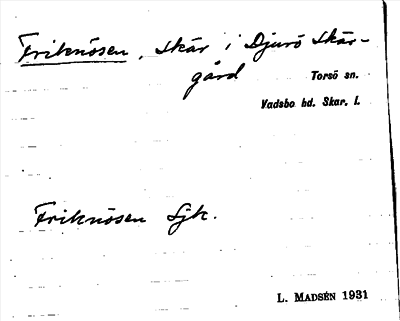 Friknösen, skär i Djurö skär-
gård
Torsö sn.
Vadsbo hd. Skar. l.
Friknösen Sjk.
L. MADSÉN 1931